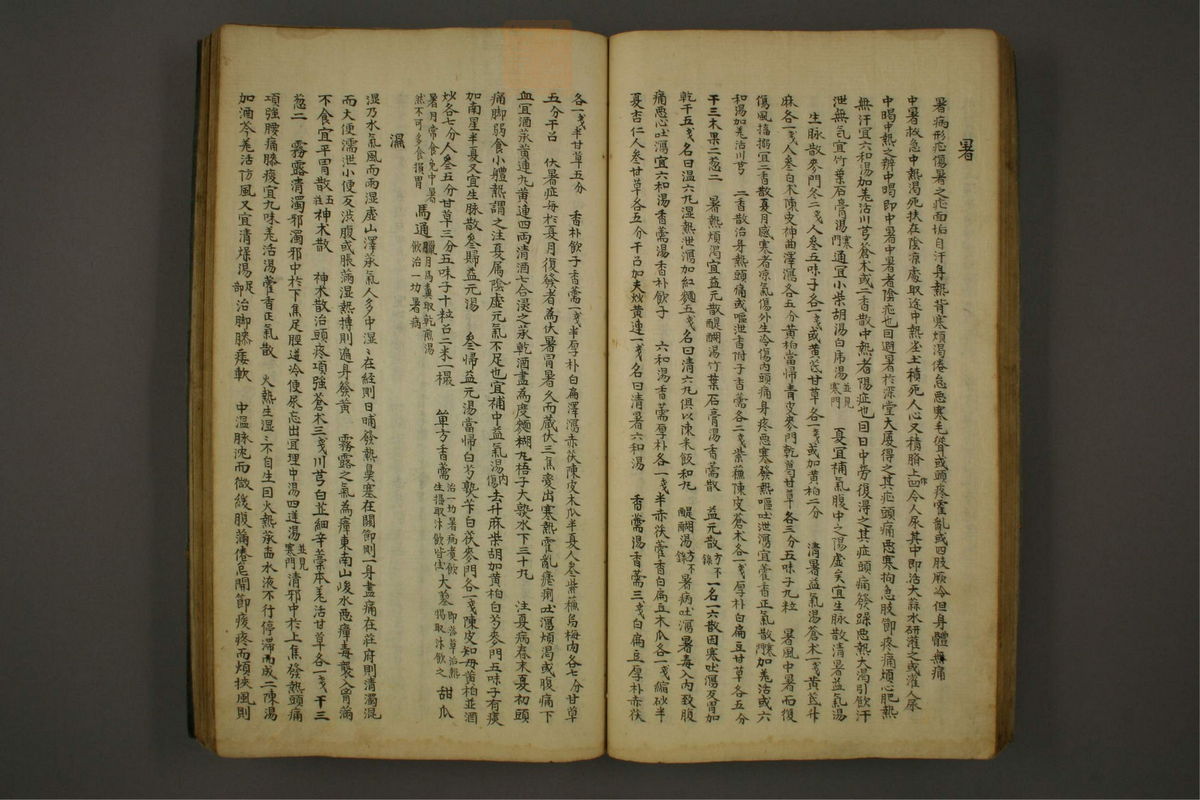 暑
暑病形症傷暑之症面垢自汗身熱背寒煩渴倦怠惡寒毛聳或頭疼霍亂或四肢厥冷但身體無痛
中暑救急中熱暍死扶在陰涼處取途中熱圡積死人心又積臍上令人尿其中即活大蒜水研灌之或灌人尿
中暍中熱之辨中暍即中暑中暑者陰症也曰避暑於深堂大厦得之其症頭痛惡寒拘急肢節疼痛煩心肥熱
無汗宜六和湯加羌活川芎蒼朮或二香散中熱者陽症也曰日中勞復得之其症頭痛發躁惡熱大渴引飮汗
泄無氣宜竹葉石膏湯寒門通宜小柴胡湯白虎湯並見寒門 夏宜補氣腹中之陽虛矣宜生脉散清暑益氣湯
生脉散麥門冬二戔人參五味子各一戔或黃芪甘草各一戔或加黃栢二分 清暑益氣湯蒼朮一戔黃芪升
麻各一戔人參白朮陳皮神曲澤瀉各五分黃栢當帰青皮麥門乾葛甘草各三分五味子九粒 暑風中暑而復
傷風搐搦宜二香散夏月感寒者凉氣傷外生冷傷內頭痛身疼惡寒發熱嘔吐泄瀉宜藿香正氣散寒門加羌活或六
和湯加羌活川芎 二香散治身熱頭痛或嘔泄香附子香薷各二戔紫蘓陳皮蒼朮各一戔厚朴白扁豆甘草各五分
干三木果二葱二 暑熱煩渴宜益元散醍醐湯竹葉石膏湯香薷散 益元散方不錄一名六一散因寒吐瀉反胃加
乾干五戔名曰溫六丸湿熱泄瀉加紅麯五戔名曰清六丸俱以陳米飯和丸 醍醐湯方不錄 暑病吐瀉暑毒入內致腹
痛惡心吐瀉宜六和湯香薷湯香朴飲子 六和湯香薷厚朴各一戔半赤茯藿香白扁豆木瓜各一戔縮砂半
夏杏仁人參甘草各五分干召加夫炒黃連一戔名曰清暑六和湯 香薷湯香薷三戔白扁豆厚朴赤茯
各一戔半甘草五分 香朴飲子香薷一戔半厚朴白扁澤瀉赤茯陳皮木瓜半夏人參紫蘓烏梅肉各七分甘草
五分干召 伏暑症每於夏月復發者為伏暑冒暑久而蔵伏三焦変出寒熱霍亂瘧痢吐瀉煩渴或腹痛下
血宜酒蒸黃連丸黃連四両清酒七合浸之蒸乾酒盡為度麵糊丸梧子大熟水下三十丸 注夏病春末夏初頭
痛脚弱食小體熱謂之注夏属陰虛元氣不足也宜補中益氣湯內傷去升麻柴胡加黃柏白芍麥門五味子有痰
加南星半夏又宜生脉散參歸益元湯 參帰益元湯當帰白芍熟芐白茯麥門各一戔陳皮知母黃柏並酒
炒各七分人參五分甘草三分五味子十粒召二米一撮 單方香薷治一切暑病煮飲生搗取汁飲皆宜大蓼即浴草治熱暍取汁飲之甜瓜
暑月常食免中暑然不可多食損胃馬通臘月馬糞取乾煎湯飲治一切暑病
濕
湿乃水氣風雨雨湿虛山澤蒸氣人多中湿〻在経則日晡發熱鼻塞在關節則一身盡痛在莊府則清濁混
而大便濡泄小便反渋腹或脹滿湿熱搏則遍身發黃 霧露之氣為瘴東南山峻水惡瘴毒襲入胃滿
不食宜平胃散五莊神朮散 神朮散治頭疼項強蒼朮三戔川芎白芷細辛藁本羌活甘草各一戔干三
葱二 霧露清濁邪濁邪中於下焦足脛逆冷便尿忘出宜理中湯四逆湯並見寒門清邪中於上焦發熱頭痛
項強腰痛膝疫宜九味羌活湯藿香正氣散 火熱生湿〻不自生曰火熱蒸㪽水液不行停滞而成二陳湯
加酒芩羌活防風又宜清燥湯足部治脚膝痿軟 中溫脉沈而微緩腹滿倦怠關節疫疼而煩挾風則